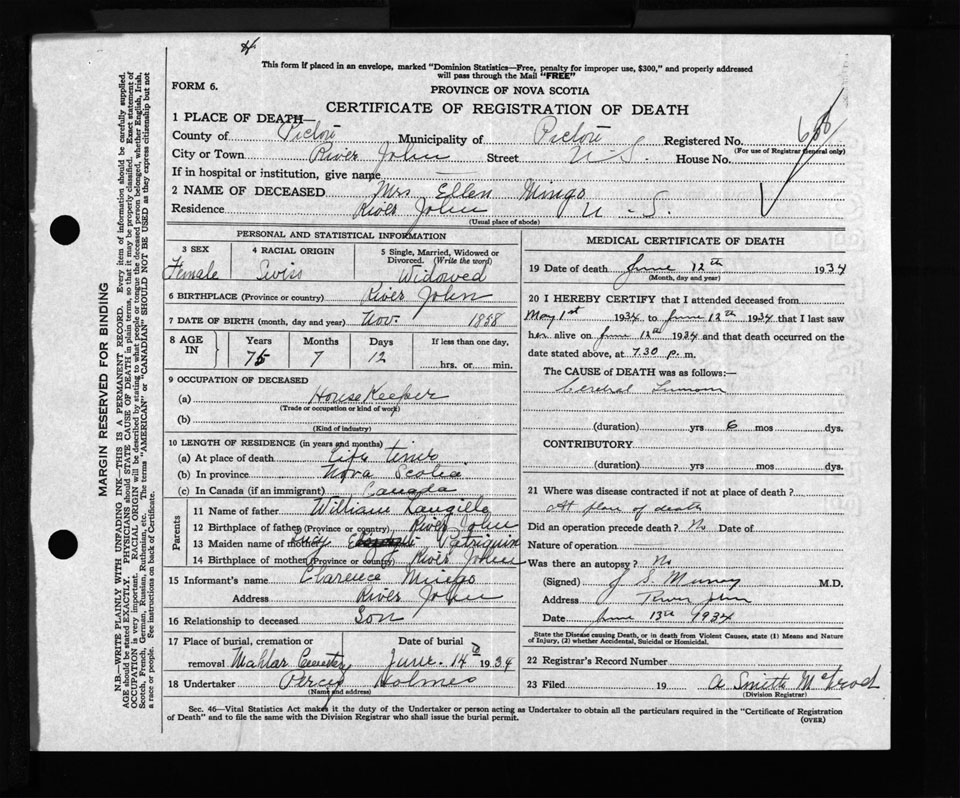 This form if placed in an envelope, marked "Dominion Statistics—Free, penalty for improper use, $300," and properly addressed
will pass through the Mail "FREE"
FORM 6.
PROVINCE OF NOVA SCOTIA
CERTIFICATE OF REGISTRATION OF DEATH
1 PLACE OF DEATH—
County of Pictou Municipality of Pictou Registered No.
(For use of Registrar General only)
City or Town River John Street N.S. House No.
If in hospital or institution, give name —
2 NAME OF DECEASED Mrs Ellen Mingo
Residence River John N-S.
(Usual place of abode)
PERSONAL AND STATISTICAL INFORMATION
3 SEX Female
4 RACIAL ORIGIN Swiss
5 Single, Married, Widowed or Divorced. (Write the word) Widowed
6 BIRTHPLACE (Province or country) River John
7 DATE OF BIRTH (month, day and year) Nov. 1858
8 AGE IN Years 75 Months 7 Days 12 If less than one day, hrs. or min.
9 OCCUPATION OF DECEASED
(a) House Keeper
(Trade or occupation or kind of work)
(b)
(Kind of industry)
10 LENGTH OF RESIDENCE (in years and months)
(a) At place of death Life time
(b) In province Nova Scotia
(c) In Canada (if an immigrant) Canada
Parents
11 Name of father William Langille
12 Birthplace of father (Province or country) River John
13 Maiden name of mother Lucy Patriquin
14 Birthplace of mother (Province or country) River John
15 Informant's name Clarence Mingo
Address River John
16 Relationship to deceased Son
17 Place of burial, cremation or removal Mahlar Cemetery
Date of burial June 14th 1934
18 Undertaker Percy Holmes
(Name and address)
MEDICAL CERTIFICATE OF DEATH
19 Date of death June 12th 1934
(Month, day and year)
20 I HEREBY CERTIFY that I attended deceased from
May 1st 1934 to June 12th 1934 that I last saw
her alive on June 12th 1934 and that death occurred on the
date stated above, at 7.30 p. m.
The CAUSE of DEATH was as follows:—
Cerebral Tumour
(duration) yrs 6 mos dys.
CONTRIBUTORY
(duration) yrs. mos. dys.
21 Where was disease contracted if not at place of death?
At place of death
Did an operation precede death? No Date of
Nature of operation
Was there an autopsy? No
(Signed) J S. Murray M.D.
Address River John
Date June 13th 1934
State the Disease causing Death, or in death from Violent Causes, state (1) Means and Nature
of Injury, (2) whether Accidental, Suicidal or Homicidal.
22 Registrar's Record Number
23 Filed 19 A Smith McLeod
(Division Registrar)
Sec. 46—Vital Statistics Act makes it the duty of the Undertaker or person acting as Undertaker to obtain all the particulars required in the "Certificate of Registration
of Death" and to file the same with the Division Registrar who shall issue the burial permit.
(OVER)
MARGIN RESERVED FOR BINDING
N.B.—WRITE PLAINLY WITH UNFADING INK—THIS IS A PERMANENT RECORD. Every item of information should be carefully supplied.
AGE should be stated EXACTLY. PHYSICIANS should STATE CAUSE OF DEATH in plain terms, so that it may be properly classified. Exact statement of
OCCUPATION is very important. RACIAL ORIGIN will be described by stating to what people or tongue the deceased person belonged, whether English, Irish,
Scotch, French, German, Russian, Ruthenian, etc. The terms "AMERICAN" or "CANADIAN" SHOULD NOT BE USED as they express citizenship but not
a race or people. See instructions on back of Certificate.